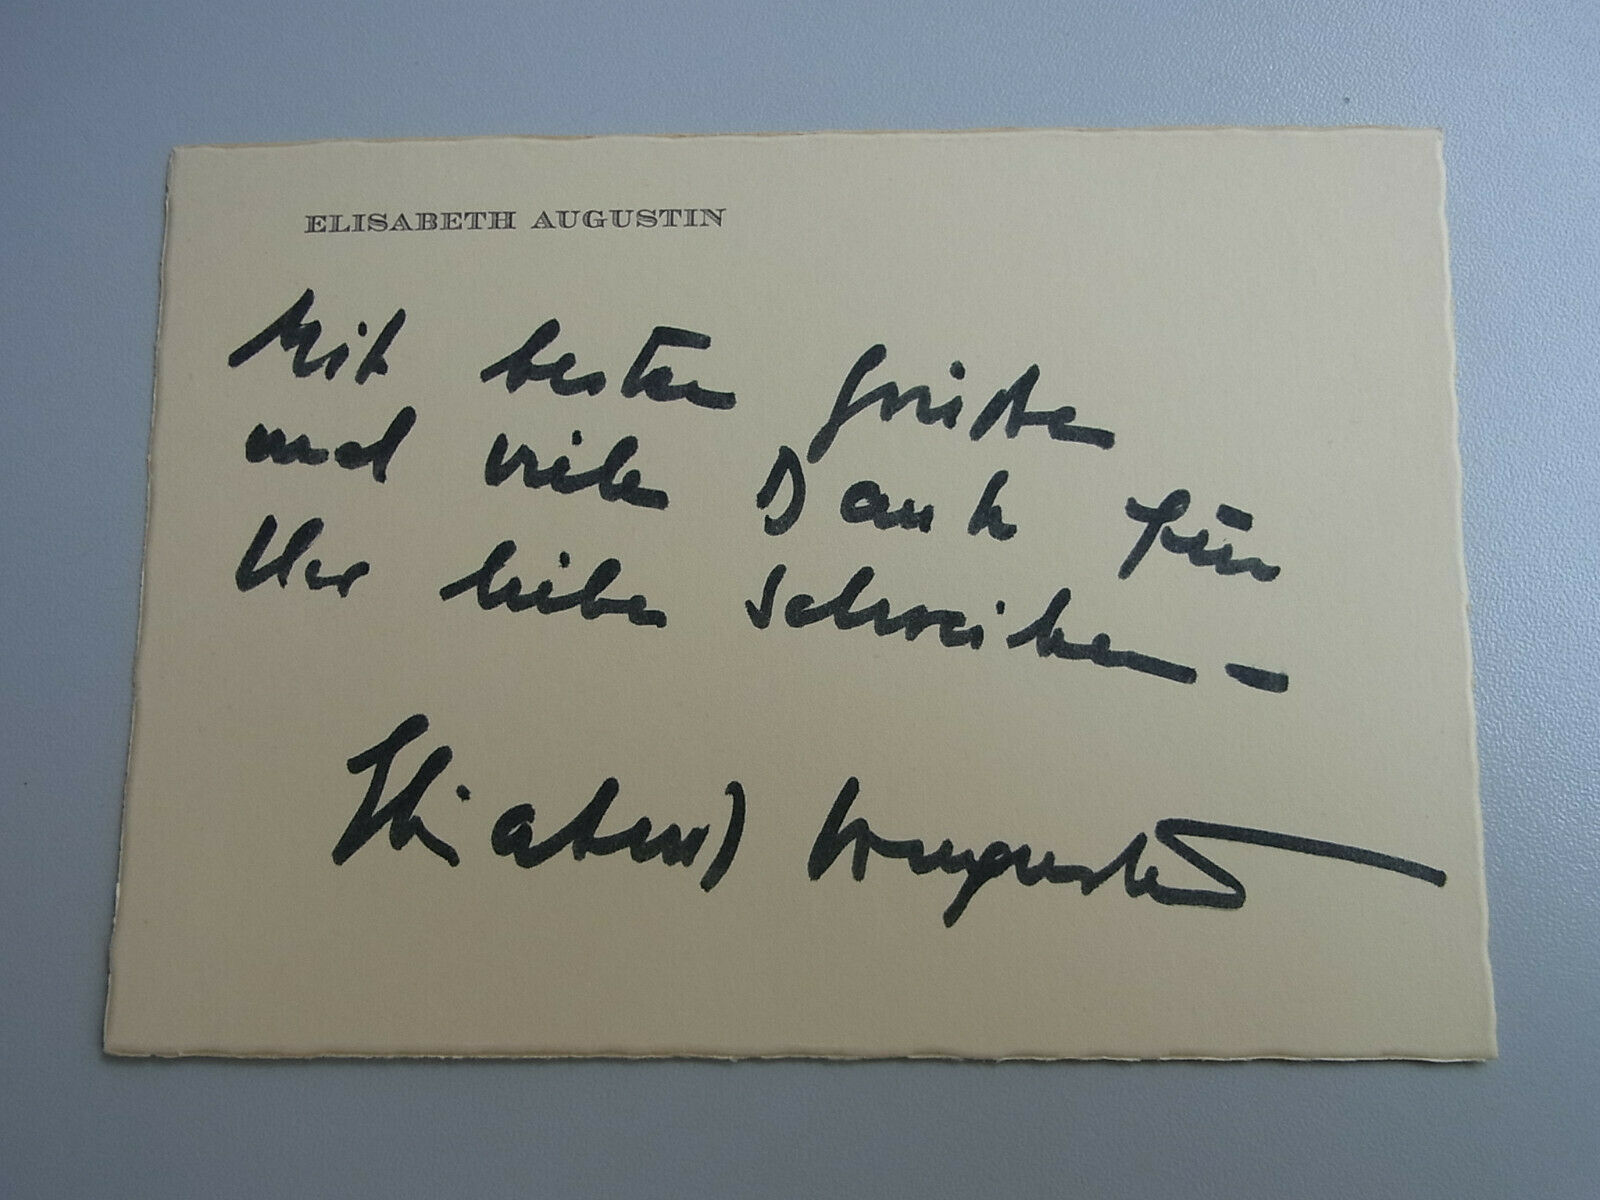 ELISABETH AUGUSTIN
Mit besten Grüßen
und vielen Dank für
Ihr liebes Schreiben –
Elisabeth Augustin